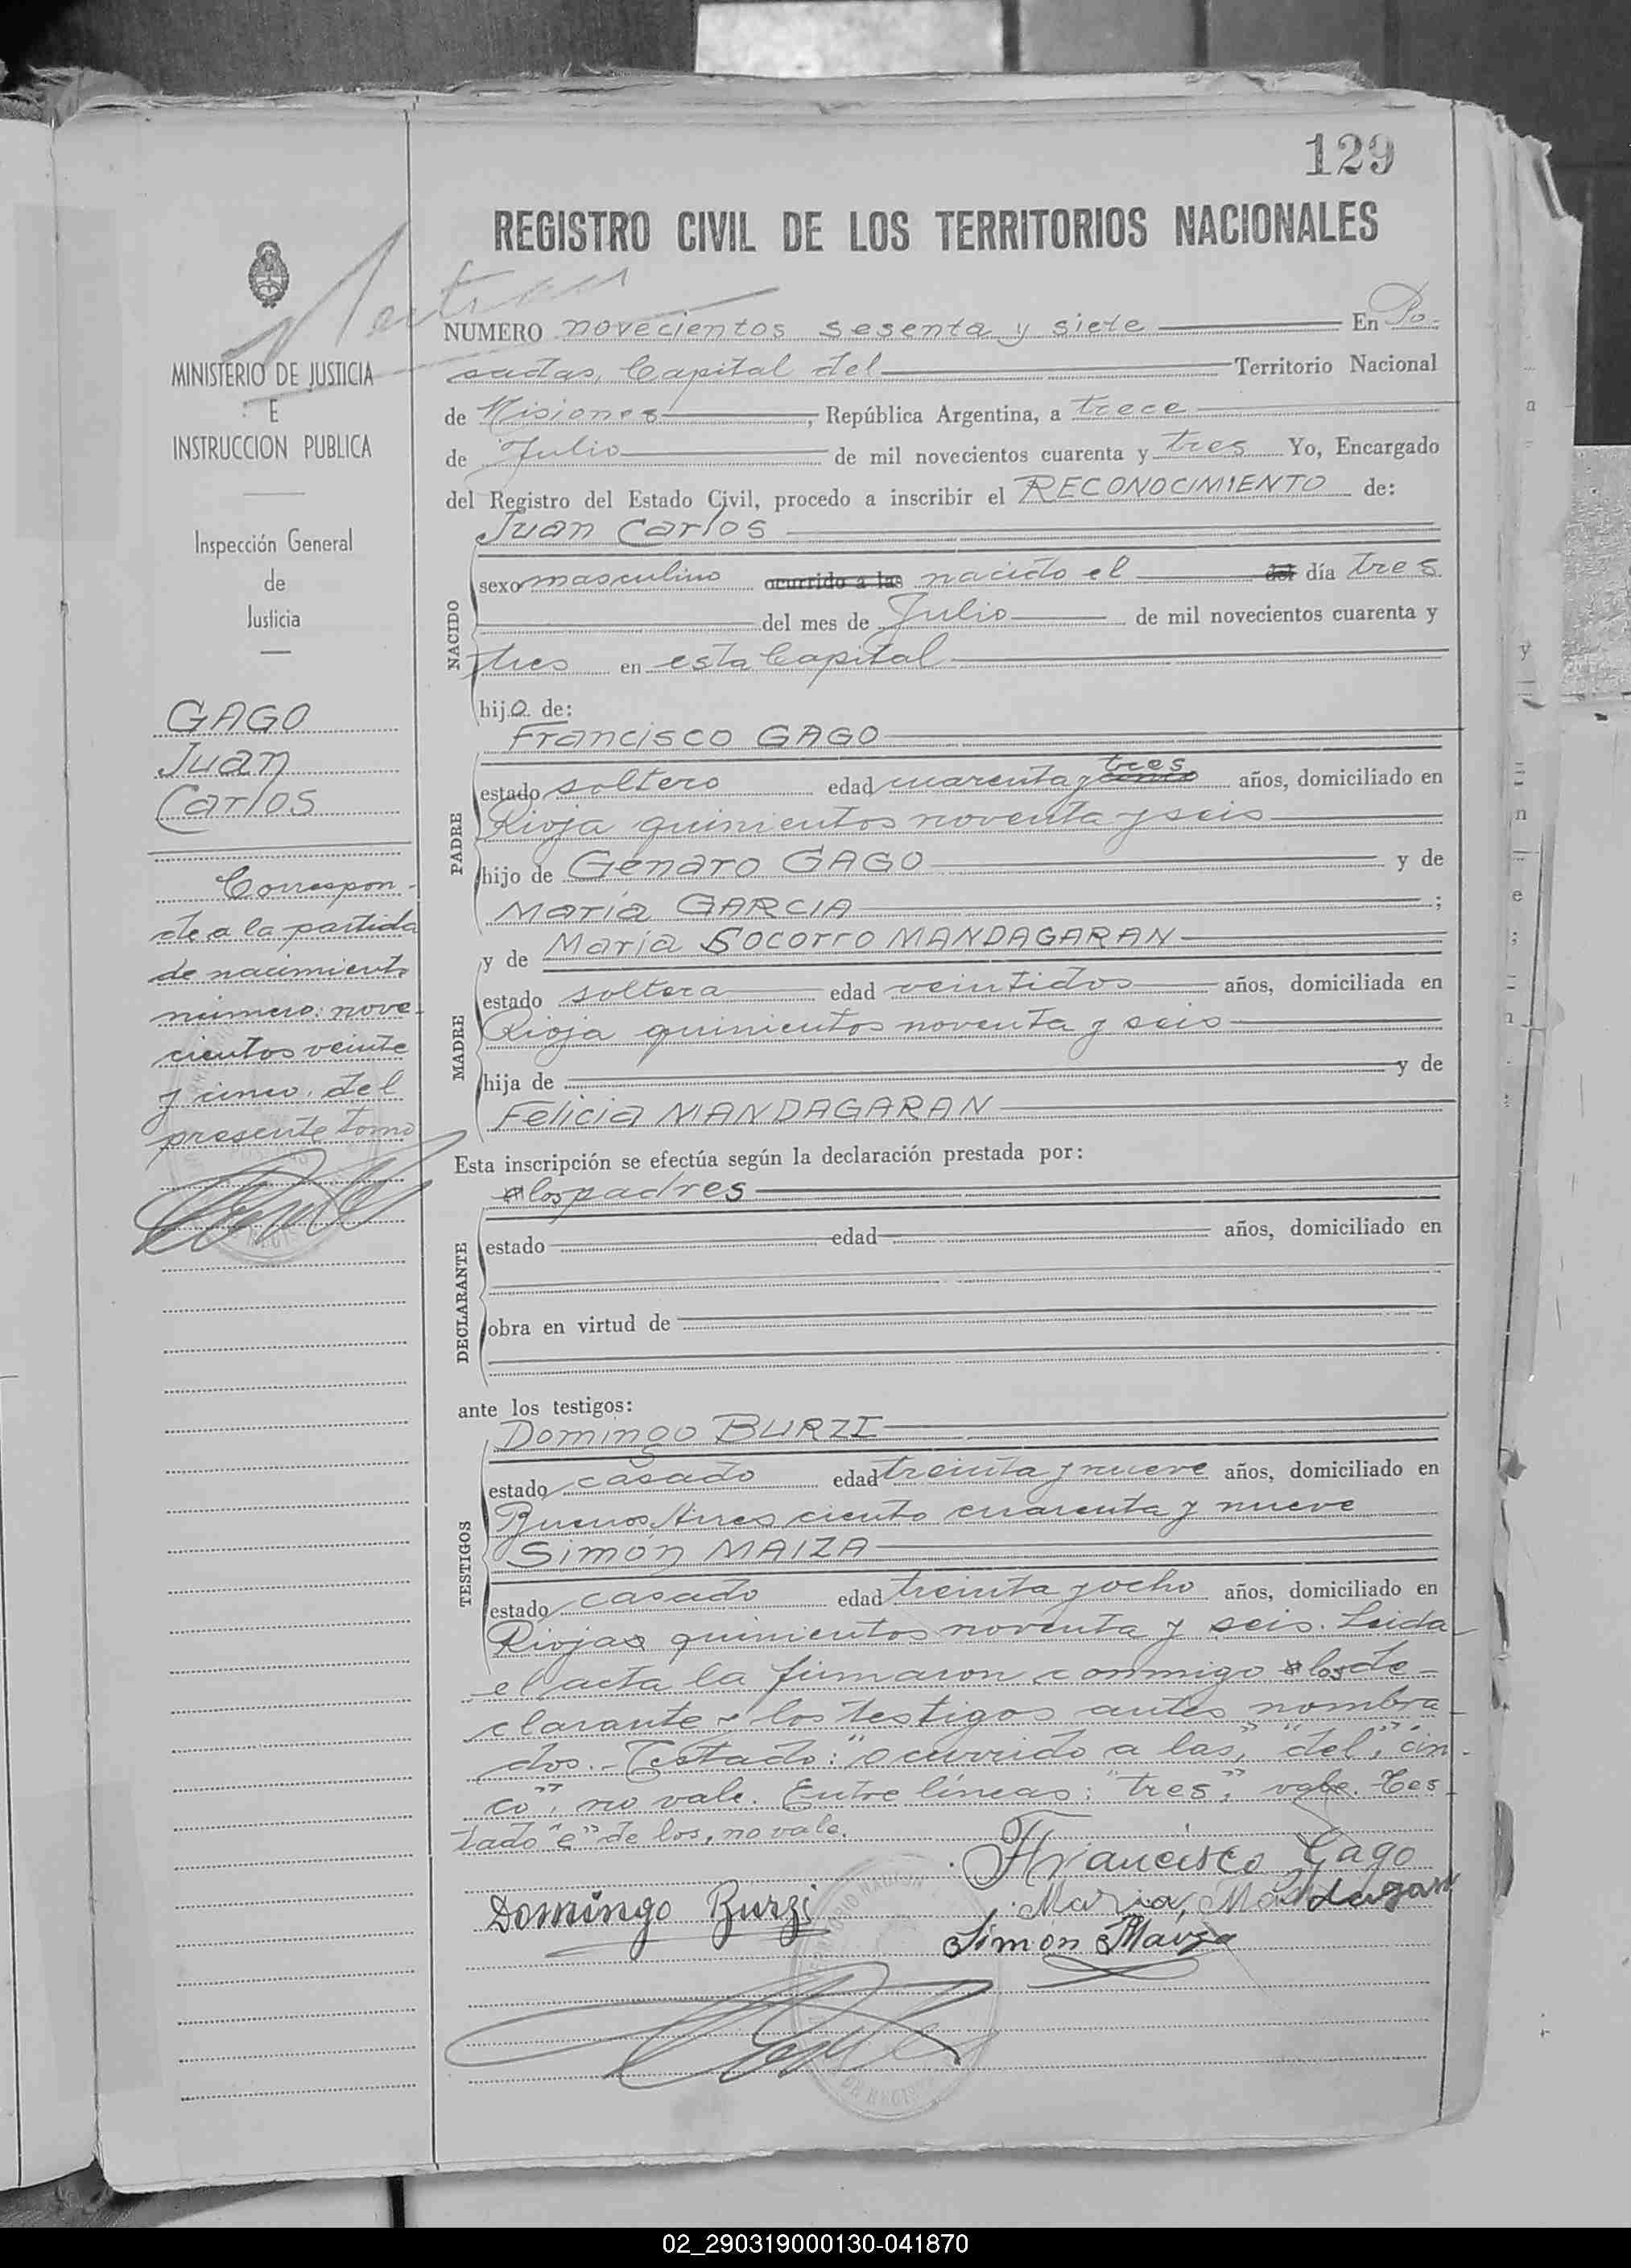 129
REGISTRO CIVIL DE LOS TERRITORIOS NACIONALES
MINISTERIO DE JUSTICIA
E
INSTRUCCION PUBLICA
Inspección General
de
Justicia
GAGO
Juan
Carlos
Correspon-
de a la partida
de nacimiento
número: nove-
cientos veinte
y cinco, del
presente tomo
NUMERO novecientos sesenta y siete En Po-
sadas, Capital del Territorio Nacional
de Misiones, República Argentina, a trece
de Julio de mil novecientos cuarenta y tres Yo, Encargado
del Registro del Estado Civil, procedo a inscribir el RECONOCIMIENTO de:
NACIDO
Juan Carlos
sexo masculino ocurrido a las nacido el del día tres
del mes de Julio de mil novecientos cuarenta y
tres en esta Capital
hijo de:
PADRE
Francisco GAGO
tres
estado soltero edad cuarenta y cinco años, domiciliado en
Rioja quinientos noventa y seis
hijo de Genaro GAGO y de
María GARCIA;
MADRE
y de María Socorro MANDAGARAN
estado soltera edad veintidos años, domiciliada en
Rioja quinientos noventa y seis
hija de y de
Felicia MANDAGARAN
Esta inscripción se efectúa según la declaración prestada por:
DECLARANTE
los padres
estado edad años, domiciliado en
obra en virtud de
ante los testigos:
TESTIGOS
Domingo BURZI
estado casado edad treinta y nueve años, domiciliado en
Buenos Aires ciento cuarenta y nueve
Simón MAIZA
estado casado edad treinta y ocho años, domiciliado en
Rioja quinientos noventa y seis. Leida
el acta la firmaron conmigo los de-
clarante y los testigos antes nombra-
dos.- Testado: "ocurrido a las", "del", "cin-
co", no vale. Entre líneas: "tres", vale. Tes-
tado "e" de los, no vale.
Francisco Gago
Domingo Burzi
Maria Mandagaran
Simón Maiza
02_290319000130-041870